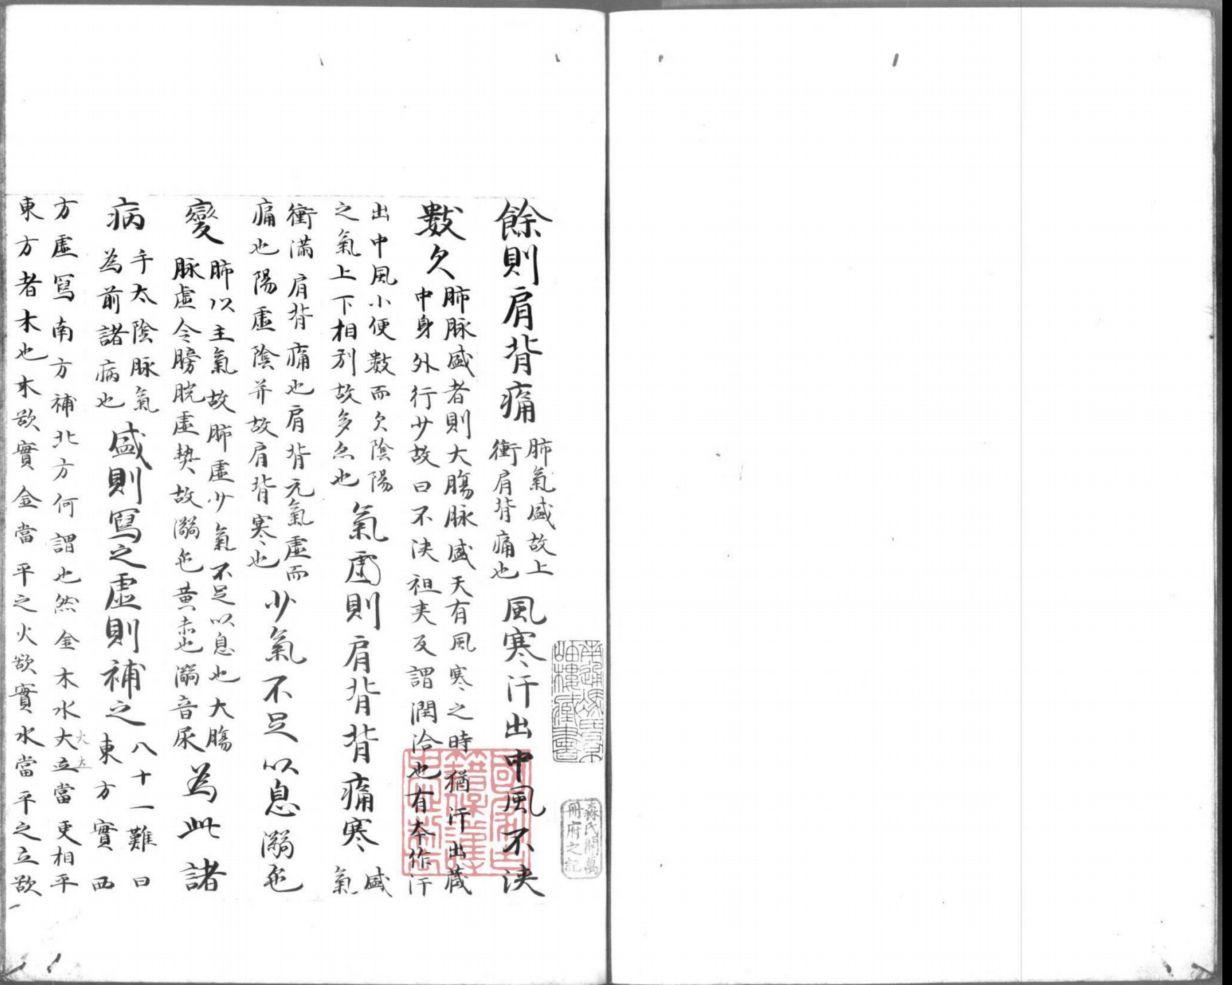 餘則肩背痛
肺氣盛故上
衝肩背痛也
風寒汗出中風不浹
數欠
肺脉盛者則大腸脉盛天有風寒之時猶汗出蔵
中身外行少故曰不浹祖夾反謂潤洽也有本作汗
出中風小便數而欠陰陽
之氣上下相引故多欠也
氣虛則肩背背痛寒
盛
氣
衝滿肩背痛也肩背元氣虛而
痛也陽虛陰并故肩背寒也
少氣不足以息溺色
變
肺以主氣故肺虛少氣不足以息也大腸
脉虛令膀胱虛熱故溺色黄赤也溺音尿
為此諸
病
手太陰脉氣
為前諸病也
盛則寫之虛則補之
八十一難曰
東方實西
方虛寫南方補北方何謂也然金木水大立當更相平
火土
東方者木也木欲實金當平之火欲實水當平之立欲
南通馮氏景
岫樓藏書
森氏開萬
冊府之記